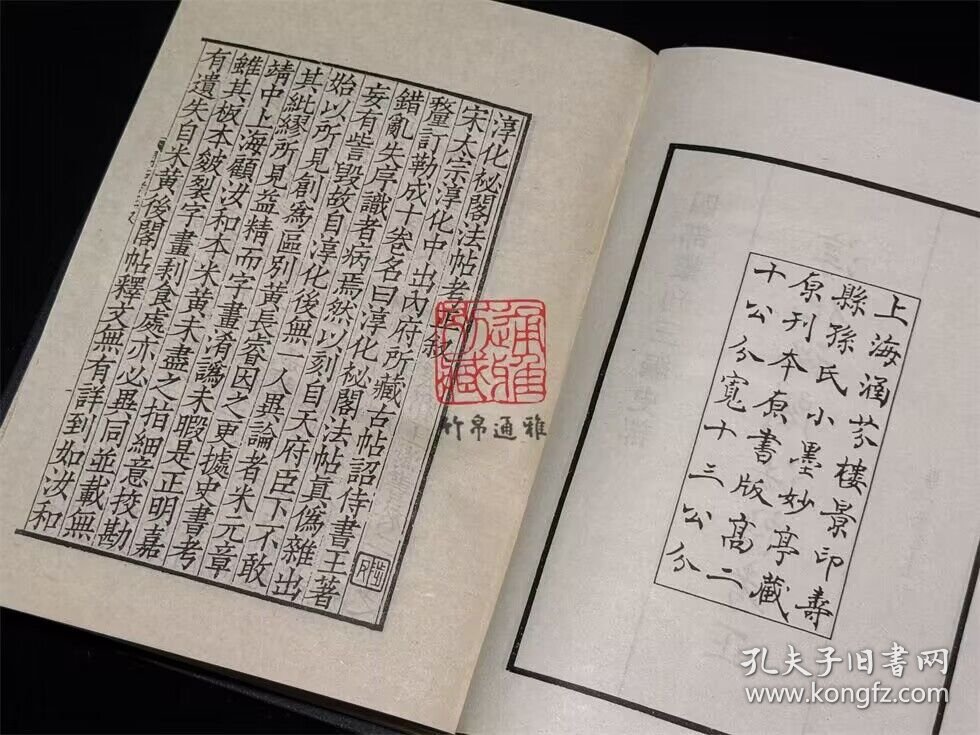 上海涵芬樓景印壽
縣孫氏小墨妙亭藏
原刊本原書版高二
十公分寬十三公分
淳化祕閣法帖考正敘
宋太宗淳化中出內府所藏古帖詔侍書王著
釐訂勒成十卷名曰淳化祕閣法帖真偽雜出
錯亂失序識者病焉然以刻自天府臣下不敢
妄有訾毀故自淳化後無一人異論者米元章
始以所見創為區別黃長睿因之更據史書考
其紕繆所見益精而字畫淆譌未暇是正明嘉
靖中上海顧汝和本米黃未盡之指細意挍勘
雖其板本皴裂字畫剥食處亦必畢同並載無
有遺失自米黃後閣帖釋文無有詳到如汝和
竹帛通雅
孔夫子旧书网
www.kongfz.com